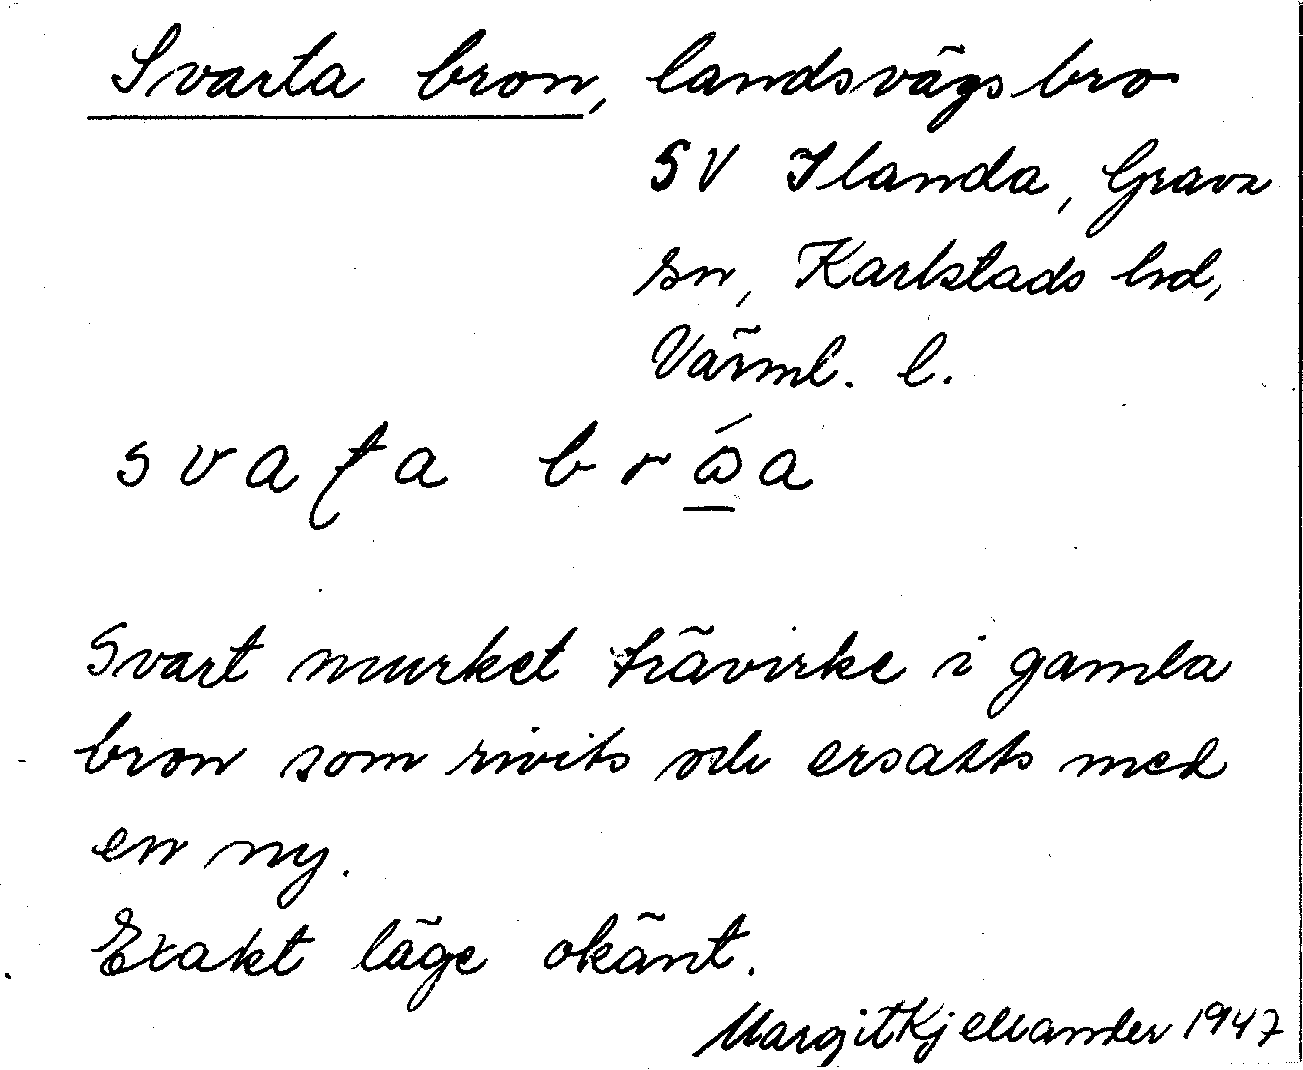 Svarta bron, landsvägsbro
SV Ilanda, Grava
sn, Karlstads hd,
Värml. l.
svaʈa brɷ́a
Svart murket trävirke i gamla
bron som rivits och ersatts med
en ny.
Exakt läge okänt.
Margit Kjellander 1947